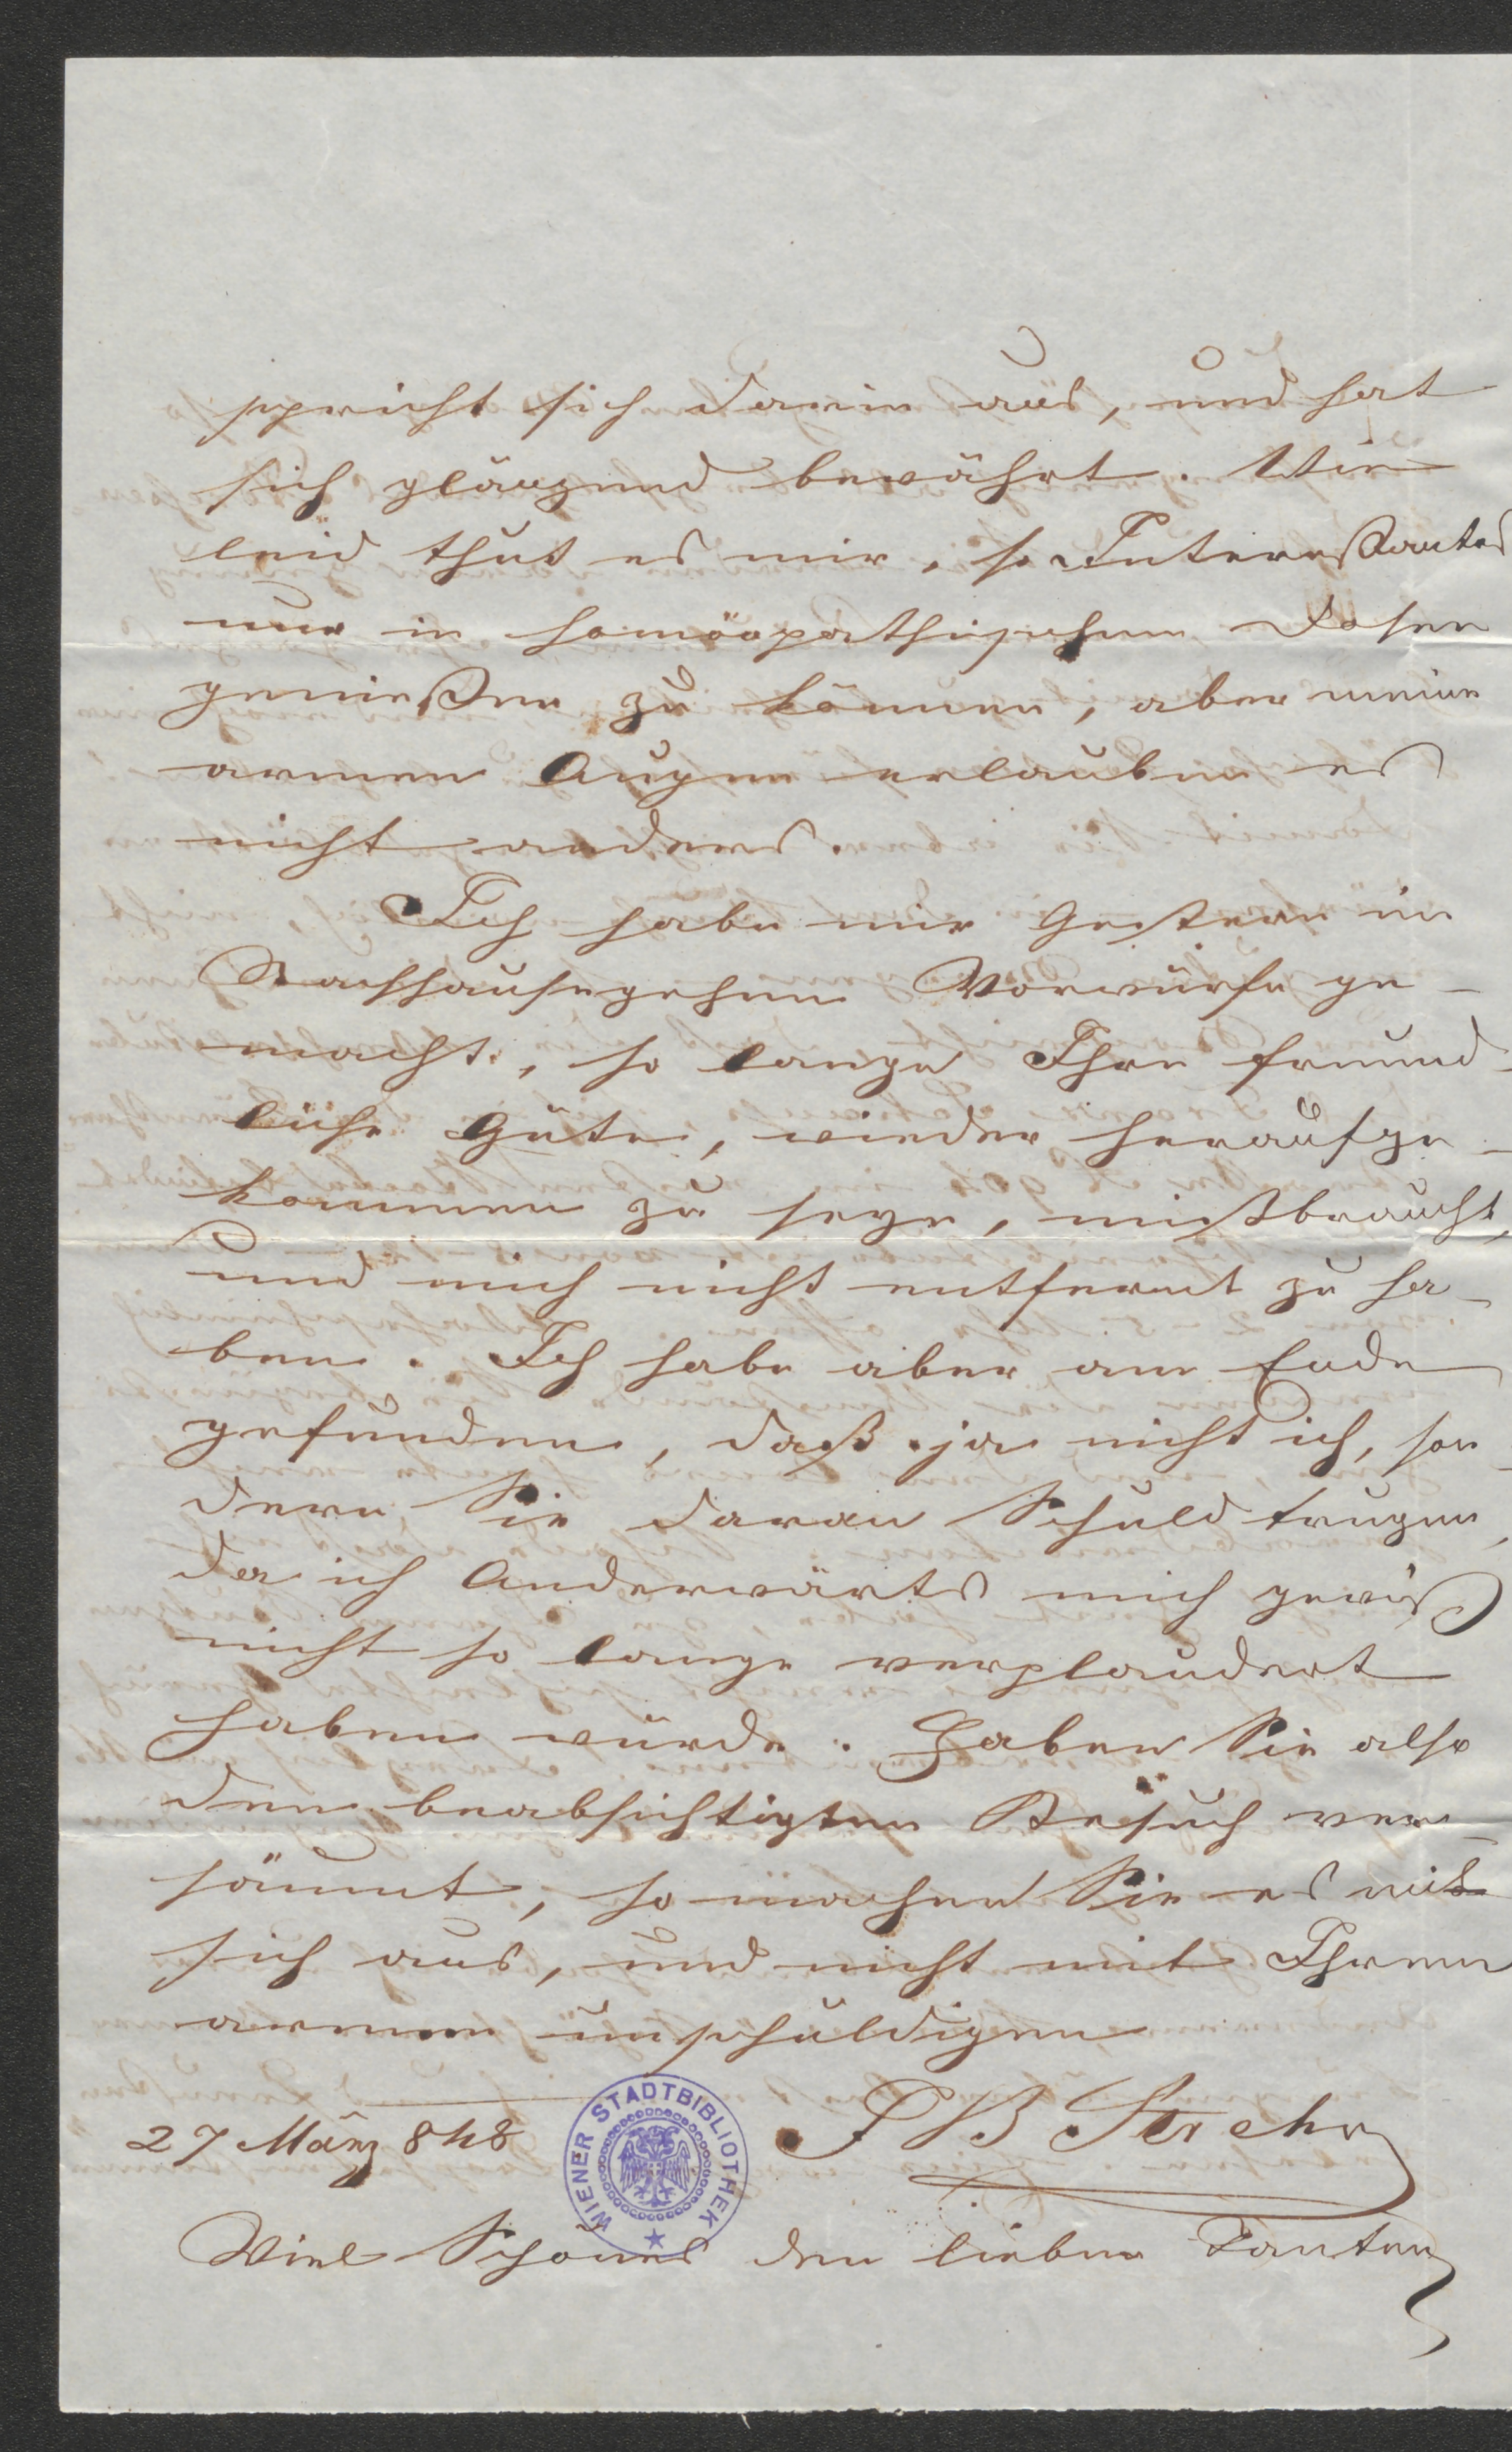 spricht sich darin aus, und hat
sich glänzend bewährt. Wie
leid thut es mir, so Interessantes
nur in homöopathischen Dosen
genießen zu können, aber meine
armen Augen erlauben es
nicht anders.
Ich habe mir Gestern im
Nachhausegehen Vorwürfe ge-
macht, so lange Ihre freund-
liche Güte, wieder heraufge-
kommen zu seyn, mißbraucht,
und mich nicht entfernt zu ha-
ben. Ich habe aber am Ende
gefunden, daß ja nicht ich, son-
dern Sie daran Schuld trugen,
da ich Anderwärts mich gewiß
nicht so lange verplaudert
haben würde. Haben Sie also
den beabsichtigten Besuch ver-
säumt, so machen Sie es mit
sich aus, und nicht mit Ihrem
armen unschuldigen
27 März 848
WIENER STADTBIBLIOTHEK
Viel Schönes den lieben Tanten